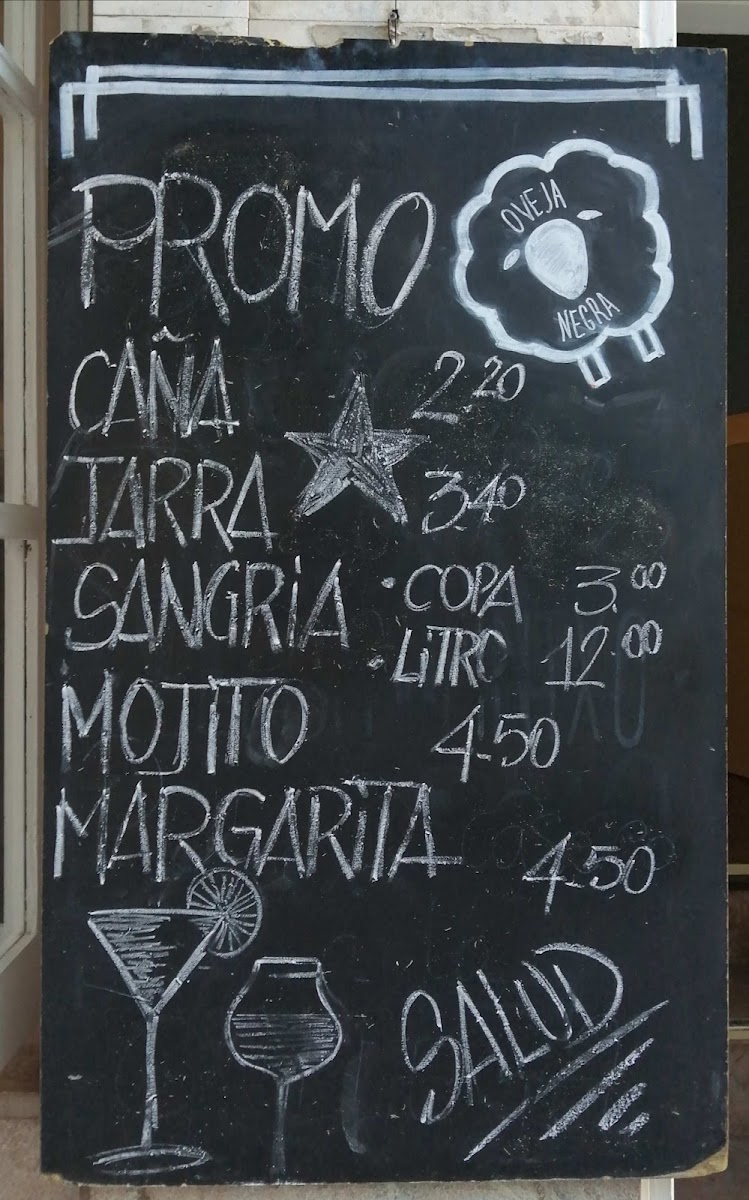 PROMO
OVEJA
NEGRA
CAÑA 2.20
JARRA 3.40
SANGRiA • COPA 3.00
• LiTRO 12.00
MOJiTO 4.50
MARGARiTA 4.50
SALUD